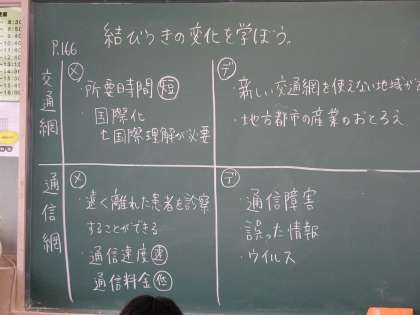 P.166 結びつきの変化を学ぼう。
交通網
㋱
・所要時間 短
・国際化
↳国際理解が必要
㋢゙
・新しい交通網を使えない地域が
・地方都市の産業のおとろえ
通信網
㋱
・遠く離れた患者を診察
することができる
・通信速度 速
通信料金 低
㋢゙
・通信障害
・誤った情報
・ウイルス